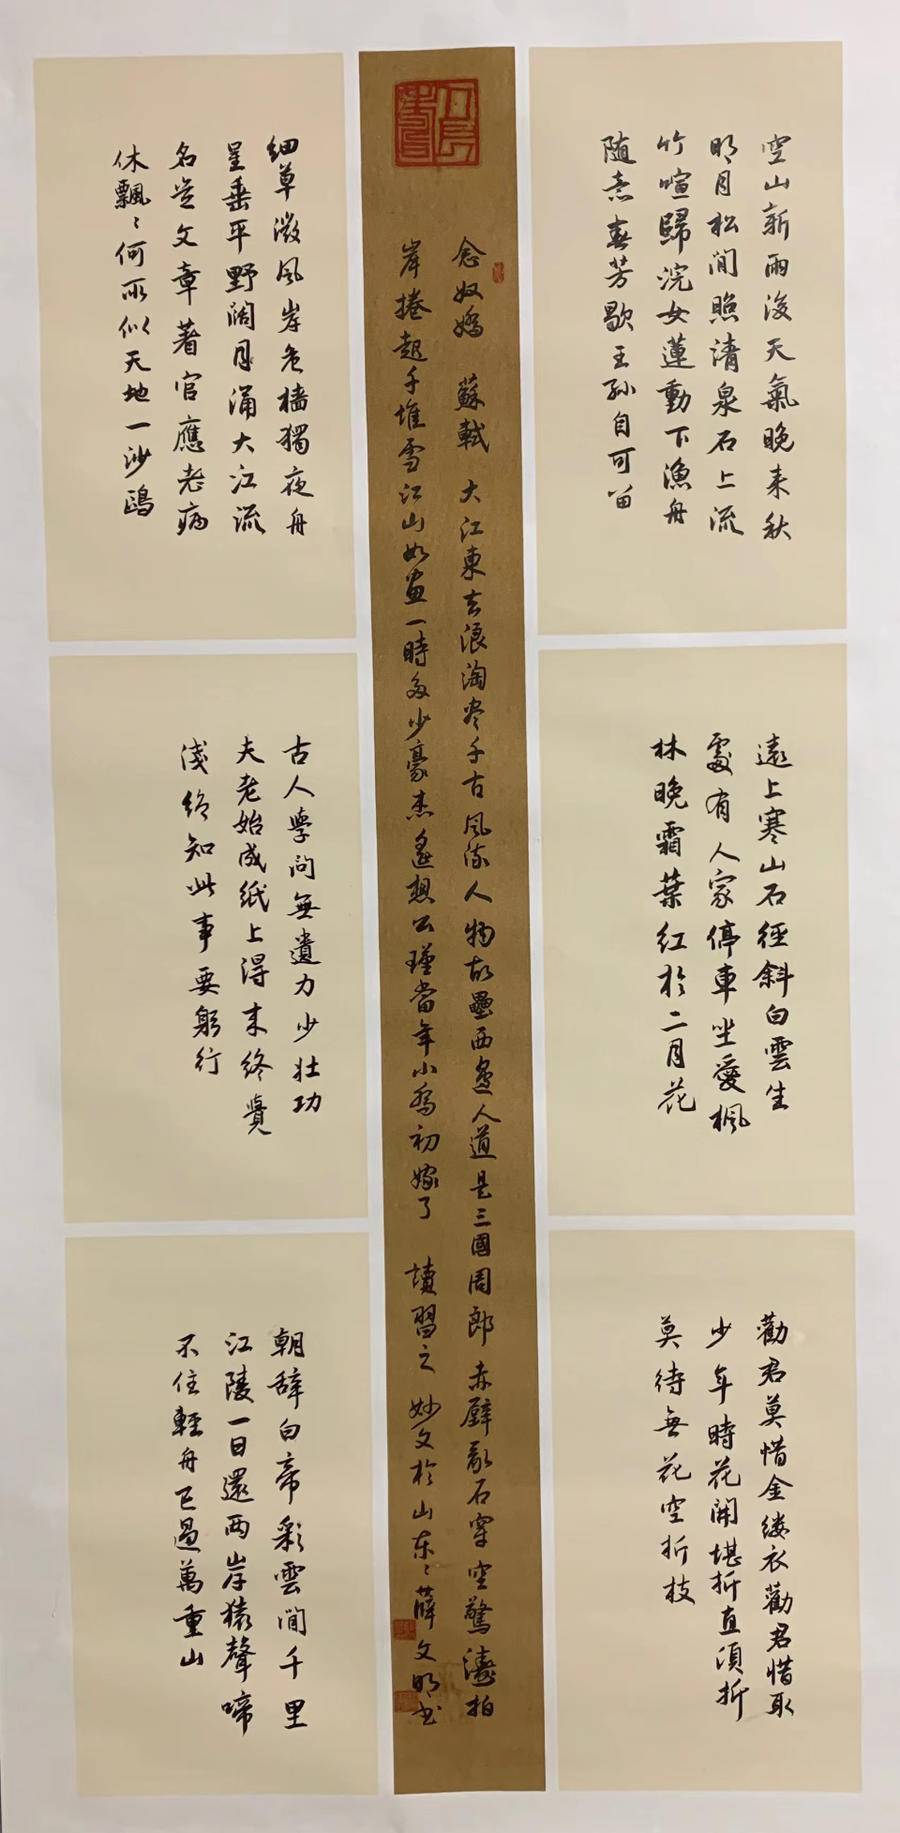 空山新雨後天氣晚来秋
明月松間照清泉石上流
竹喧歸浣女蓮動下漁舟
随意春芳歇王孫自可留
遠上寒山石徑斜白雲生
處有人家停車坐愛楓
林晚霜葉紅於二月花
勸君莫惜金缕衣勸君惜取
少年時花開堪折直須折
莫待無花空折枝
念奴嬌 蘇軾 大江東去浪淘盡千古風流人物故壘西邊人道是三國周郎赤壁亂石穿空驚濤拍
岸捲起千堆雪江山如畫一時多少豪杰遙想公瑾當年小喬初嫁了 讀習之 妙文於山东 薛文明书
細草微風岸危檣獨夜舟
星垂平野闊月涌大江流
名豈文章著官應老病
休飄〻何所似天地一沙鷗
古人學問無遺力少壯功
夫老始成紙上得来終覺
淺絕知此事要躬行
朝辞白帝彩雲間千里
江陵一日還兩岸猿聲啼
不住輕舟已過萬重山